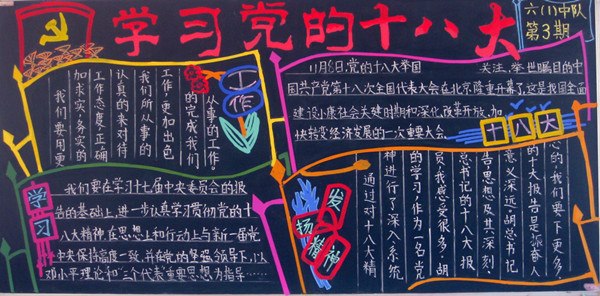 学习党的十八大
六(1)中队
第3期
工作
我们要用更
加求实,务实的
工作态度,正确
认真的来对待
我们所从事的
工作更加出色
的完成我们
从事的工作。
11月8日,党的十八大举国 关注,举世瞩目的中
国共产党第十八次全国代表大会在北京隆重开幕,这是我国全面
建设小康社会关键时期和深化改革开放、加
快转变经济发展的一次重要大会
十八大
学习
我们要在学习十七届中央委员会的报
告的基础上,进一步认真学习贯彻党的十
八大精神,在思想上和行动上与新一届党
中央保持高度一致,并在党的坚强领导下,以
邓小平理论和"三个代表"重要思想为指导……
发
扬精神
通过对十八大精
神进行了深入系统
的学习,作为一名党
员我感受很多,胡
总书记的十八大报
告思想及其深刻、
意义深远,胡总书记
的十大报告是振奋人
心的我们要下更多